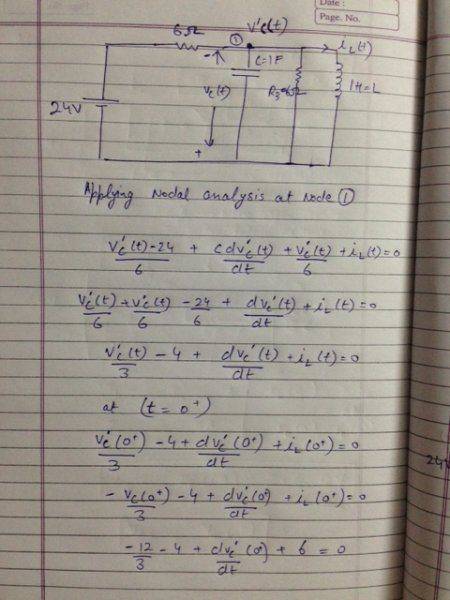 Date :
Page. No.
6Ω
①
V'c(t)
iL(t)
C=1F
R3=6Ω
1H=L
24V
Vc(t)
-
+
Applying Nodal analysis at Node ①
Vc'(t)-24/6 + C dVc'(t)/dt + Vc'(t)/6 + iL(t)=0
Vc'(t)/6 + Vc'(t)/6 - 24/6 + dVc'(t)/dt + iL(t)=0
Vc'(t)/3 - 4 + dVc'(t)/dt + iL(t)=0
at (t=0+)
Vc'(0+)/3 - 4 + dVc'(0+)/dt + iL(0+)=0
-Vc(0+)/3 - 4 + dVc'(0+)/dt + iL(0+)=0
-12/3 - 4 + dVc'(0+)/dt + 6 = 0
24V